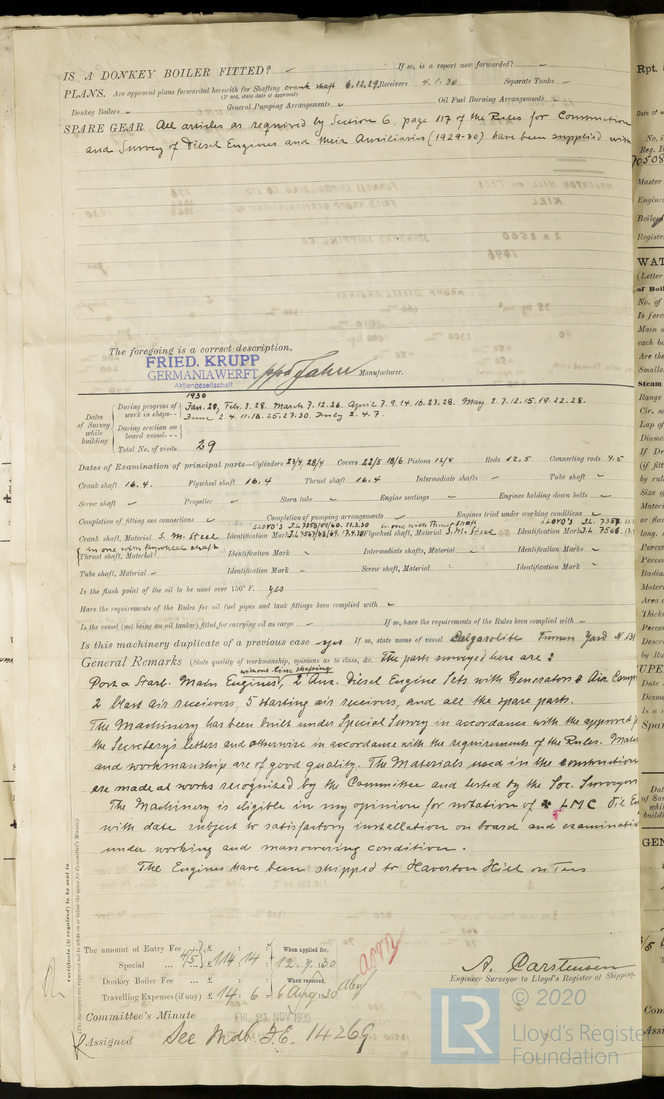 IS A DONKEY BOILER FITTED? If so, is a report now forwarded?
PLANS. Are approved plans forwarded herewith for Shafting crank shaft 6.12.29 Receivers 4.1.30 Separate Tanks
(If not, state date of approval)
Donkey Boilers General Pumping Arrangements Oil Fuel Burning Arrangements
SPARE GEAR All articles as required by Section 6, page 117 of the Rules for Construction
and Survey of Diesel Engines and their Auxiliaries (1929-30) have been supplied with
The foregoing is a correct description,
FRIED. KRUPP
GERMANIAWERFT
Aktiengesellschaft
Manufacturer.
1930
Dates of Survey while building
During progress of work in shops Jan. 28, Feb. 3. 28. March 7. 12. 26. April 7. 9. 14. 16. 23. 28. May 2. 7. 12. 15. 19. 22. 28.
June 2. 4. 11. 18. 25. 27. 30. July 2. 4. 7.
During erection on board vessel
Total No. of visits 29
Dates of Examination of principal parts—Cylinders 23/4, 28/4 Covers 22/5 18/6 Pistons 12/5 Rods 12.5 Connecting rods 9.5
Crank shaft 16.4. Flywheel shaft 16.4 Thrust shaft 16.4 Intermediate shafts Tube shaft
Screw shaft Propeller Stern tube Engine seatings Engines holding down bolts
Completion of fitting sea connections Completion of pumping arrangements Engines tried under working conditions
Crank shaft, Material S. M. Steel Identification Mark Flywheel shaft, Material S. M. Steel Identification Mark
in one with flywheel shaft
Thrust shaft, Material Identification Mark Intermediate shafts, Material Identification Marks
Tube shaft, Material Identification Mark Screw shaft, Material Identification Mark
Is the flash point of the oil to be used over 150° F. yes
Have the requirements of the Rules for oil fuel pipes and tank fittings been complied with
Is the vessel (not being an oil tanker) fitted for carrying oil as cargo If so, have the requirements of the Rules been complied with
Is this machinery duplicate of a previous case yes If so, state name of vessel Dalgasolite Furness Yard
General Remarks (State quality of workmanship, opinions as to class, &c. The parts surveyed here are:
without line shafting
Port or Starb. Main Engines, 2 Aux. Diesel Engine Sets with Generators & Air
2 blast air receivers, 5 starting air receivers, and all the spare parts.
The Machinery has been built under Special Survey in accordance with the approved
the Secretary's letters and otherwise in accordance with the requirements of the Rules.
and workmanship are of good quality. The Materials used in the construction
are made at works recognized by the Committee and tested by the Soc. Surveyors
The Machinery is eligible in my opinion for notation of LMC Oil
with date subject to satisfactory installation on board and examination
under working and manoeuvring condition.
The Engines have been shipped to Haverton Hill on Tees
The amount of Entry Fee When applied for,
Special 4/5 £ 114 : 14 : 12. 7. 1930
Donkey Boiler Fee £ When received,
Travelling Expenses (if any) £ 14 : 6 : 6 Aug. 30
A. Carstensen
Engineer Surveyor to Lloyd's Register of Shipping.
Committee's Minute FRI. 21 NOV 1930
Assigned See Mdb. F.E. 14269
© 2020
LR
Lloyd's Register
Foundation
Certificate (if required) to be sent to
(The Surveyors are requested not to write on or below the space for Committee's Minute.)